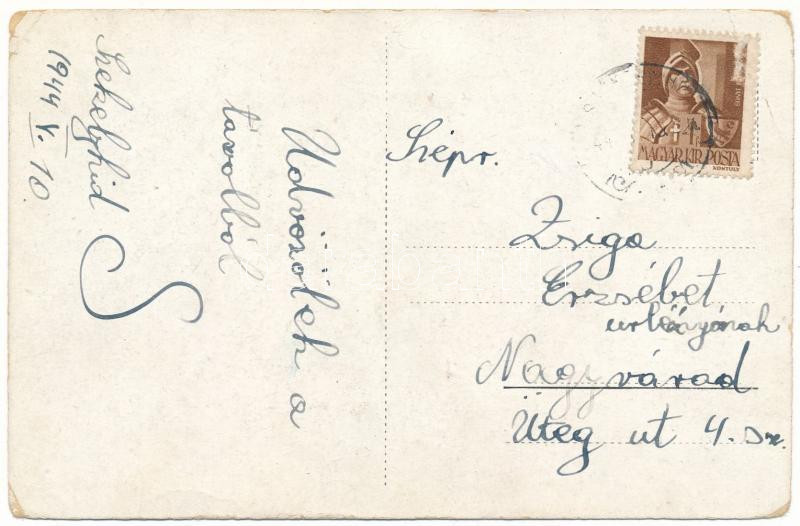 Székelyhid
1944 V. 10
Üdvözölek a
távolból
S
MAGYAR KIR. POSTA
KONTULY
Szépr.
Zsiga
Erzsébet
urleányának
Nagyvárad
Üteg ut 4. sz.